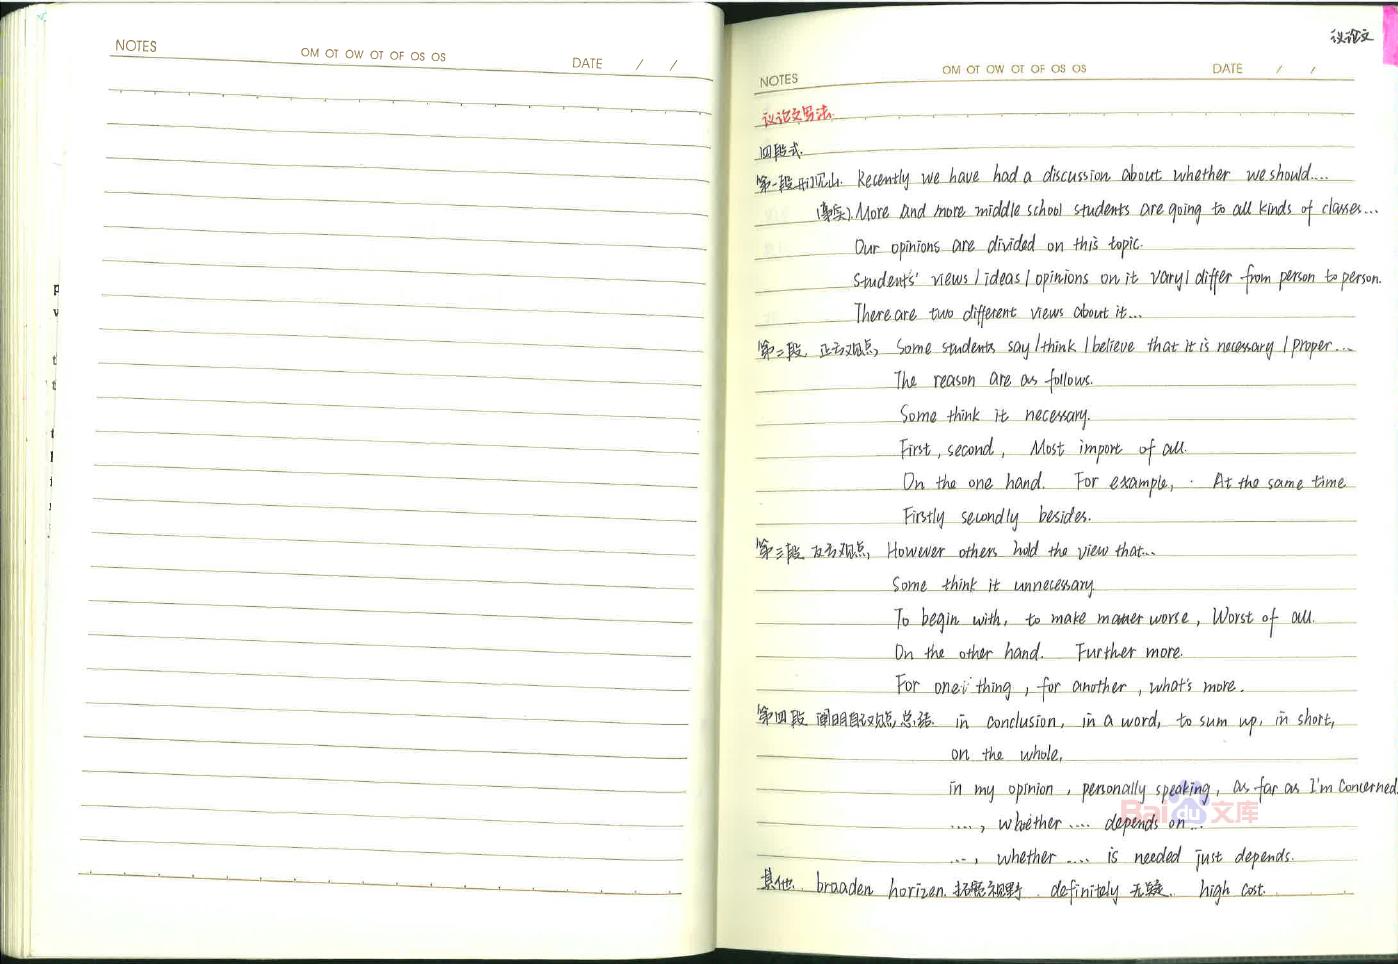 NOTES
OM OT OW OT OF OS OS
DATE / /
议论文
NOTES
OM OT OW OT OF OS OS
DATE / /
议论文写法
四段式.
第一段 开门见山. Recently we have had a discussion about whether we should....
(事实). More and more middle school students are going to all kinds of classes...
Our opinions are divided on this topic.
Students' views / ideas / opinions on it vary / differ from person to person.
There are two different views about it...
第二段 正方观点, Some students say / think / believe that it is necessary / proper...
The reason are as follows.
Some think it necessary.
First, second, Most import of all.
On the one hand. For example, . At the same time
Firstly secondly besides.
第三段 反方观点, However others hold the view that...
Some think it unnecessary.
To begin with, to make matter worse, Worst of all.
On the other hand. Further more.
For one thing, for another, what's more.
第四段 阐明自己观点,总结. in conclusion, in a word, to sum up, in short,
on the whole,
in my opinion, personally speaking, as far as I'm concerned.
...., whether .... depends on...
..., whether .... is needed just depends.
其他. braaden horizen. 拓宽视野. definitely 无疑. high cost.
Baidu文库